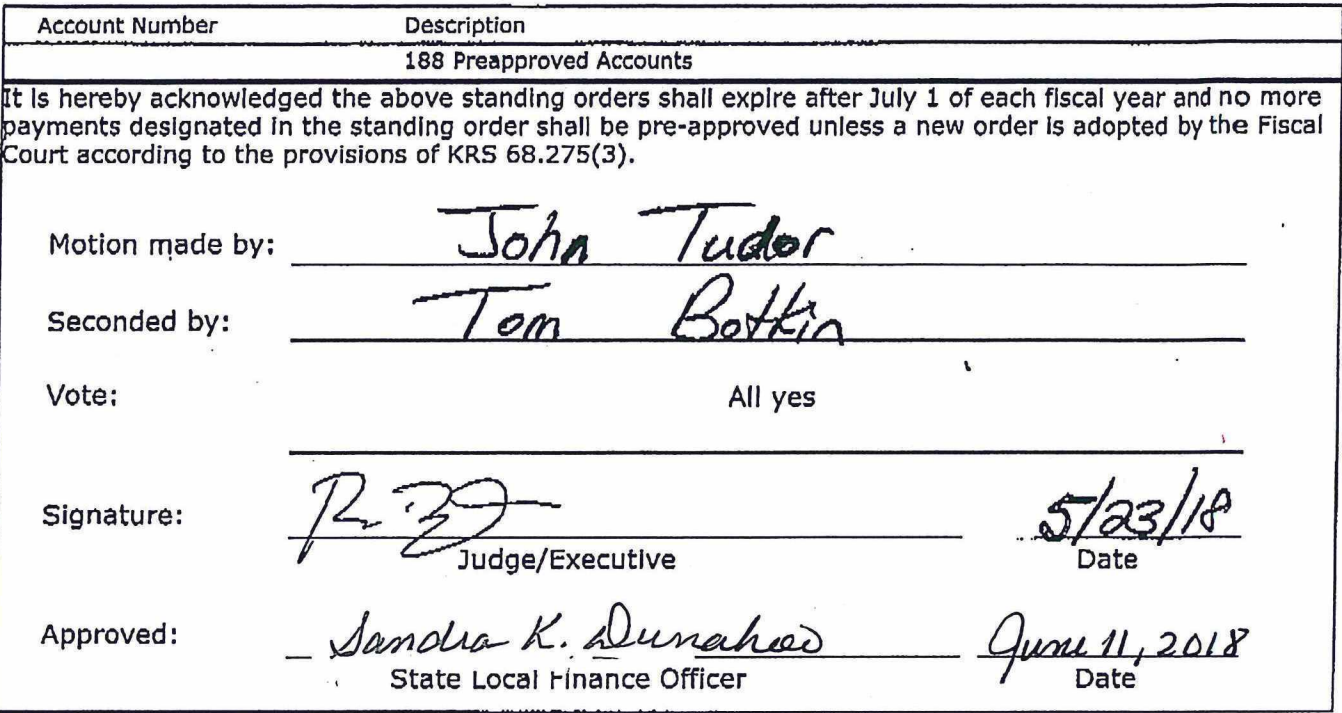 Account Number Description
188 Preapproved Accounts
It is hereby acknowledged the above standing orders shall expire after July 1 of each fiscal year and no more
payments designated in the standing order shall be pre-approved unless a new order is adopted by the Fiscal
Court according to the provisions of KRS 68.275(3).
Motion made by: John Tudor
Seconded by: Tom Botkin
Vote: All yes
Signature: 5/23/18
Judge/Executive Date
Approved: Sandra K. Dunahoo June 11, 2018
State Local Finance Officer Date